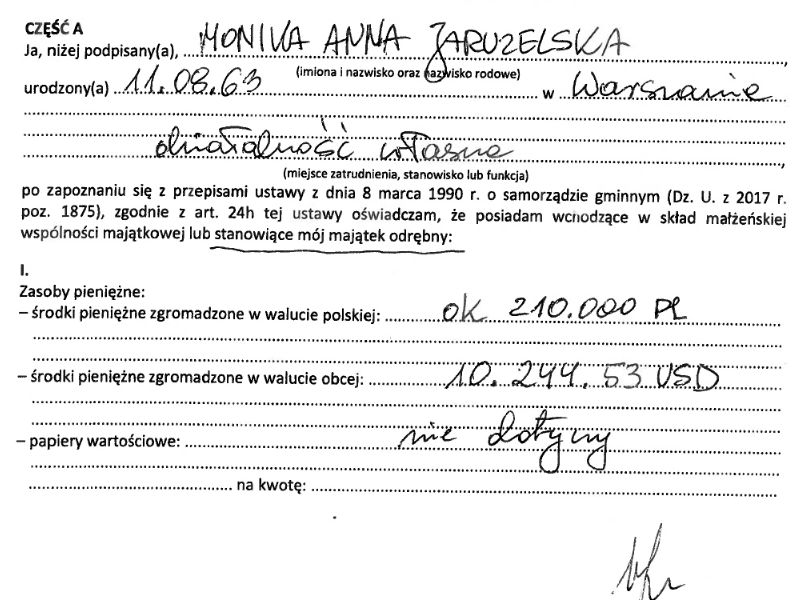 CZĘŚĆ A
Ja, niżej podpisany(a), MONIKA ANNA JARUZELSKA,
(imiona i nazwisko oraz nazwisko rodowe)
urodzony(a) 11.08.63 w Warszawie
działalność własna,
(miejsce zatrudnienia, stanowisko lub funkcja)
po zapoznaniu się z przepisami ustawy z dnia 8 marca 1990 r. o samorządzie gminnym (Dz. U. z 2017 r.
poz. 1875), zgodnie z art. 24h tej ustawy oświadczam, że posiadam wchodzące w skład małżeńskiej
wspólności majątkowej lub stanowiące mój majątek odrębny:
I.
Zasoby pieniężne:
– środki pieniężne zgromadzone w walucie polskiej: ok 210.000 PL
– środki pieniężne zgromadzone w walucie obcej: 10.244.53 USD
– papiery wartościowe: nie dotyczy
na kwotę: